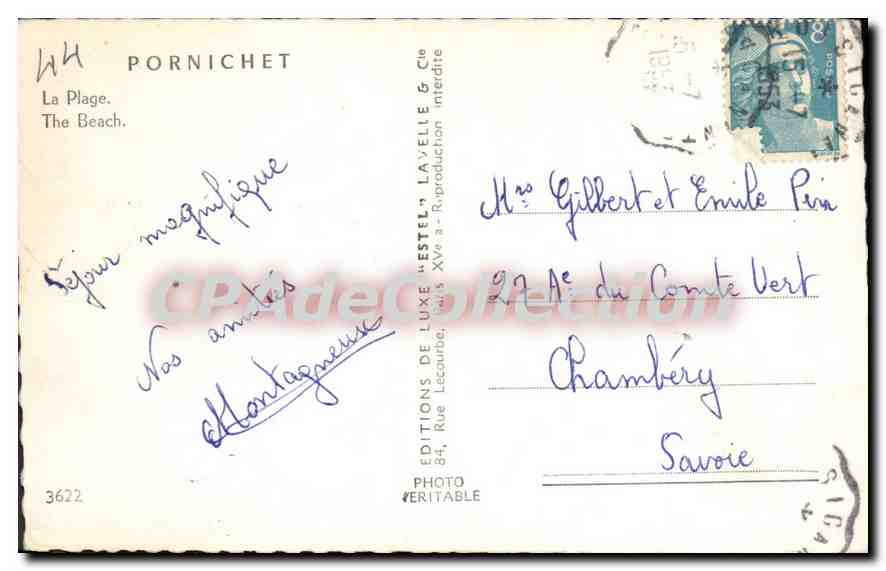 44
PORNICHET
La Plage.
The Beach.
Séjour magnifique
Nos amitiés
Montagneux
3622
EDITIONS DE LUXE "ESTEL" LAVELLE & Cie
84, Rue Lecourbe, Paris XVe - Reproduction interdite
PHOTO
VERITABLE
Mrs Gilbert et Emile Pin
27 Ae du Comte Vert
Chambéry
Savoie
15-7
1953
CPAdeCollection